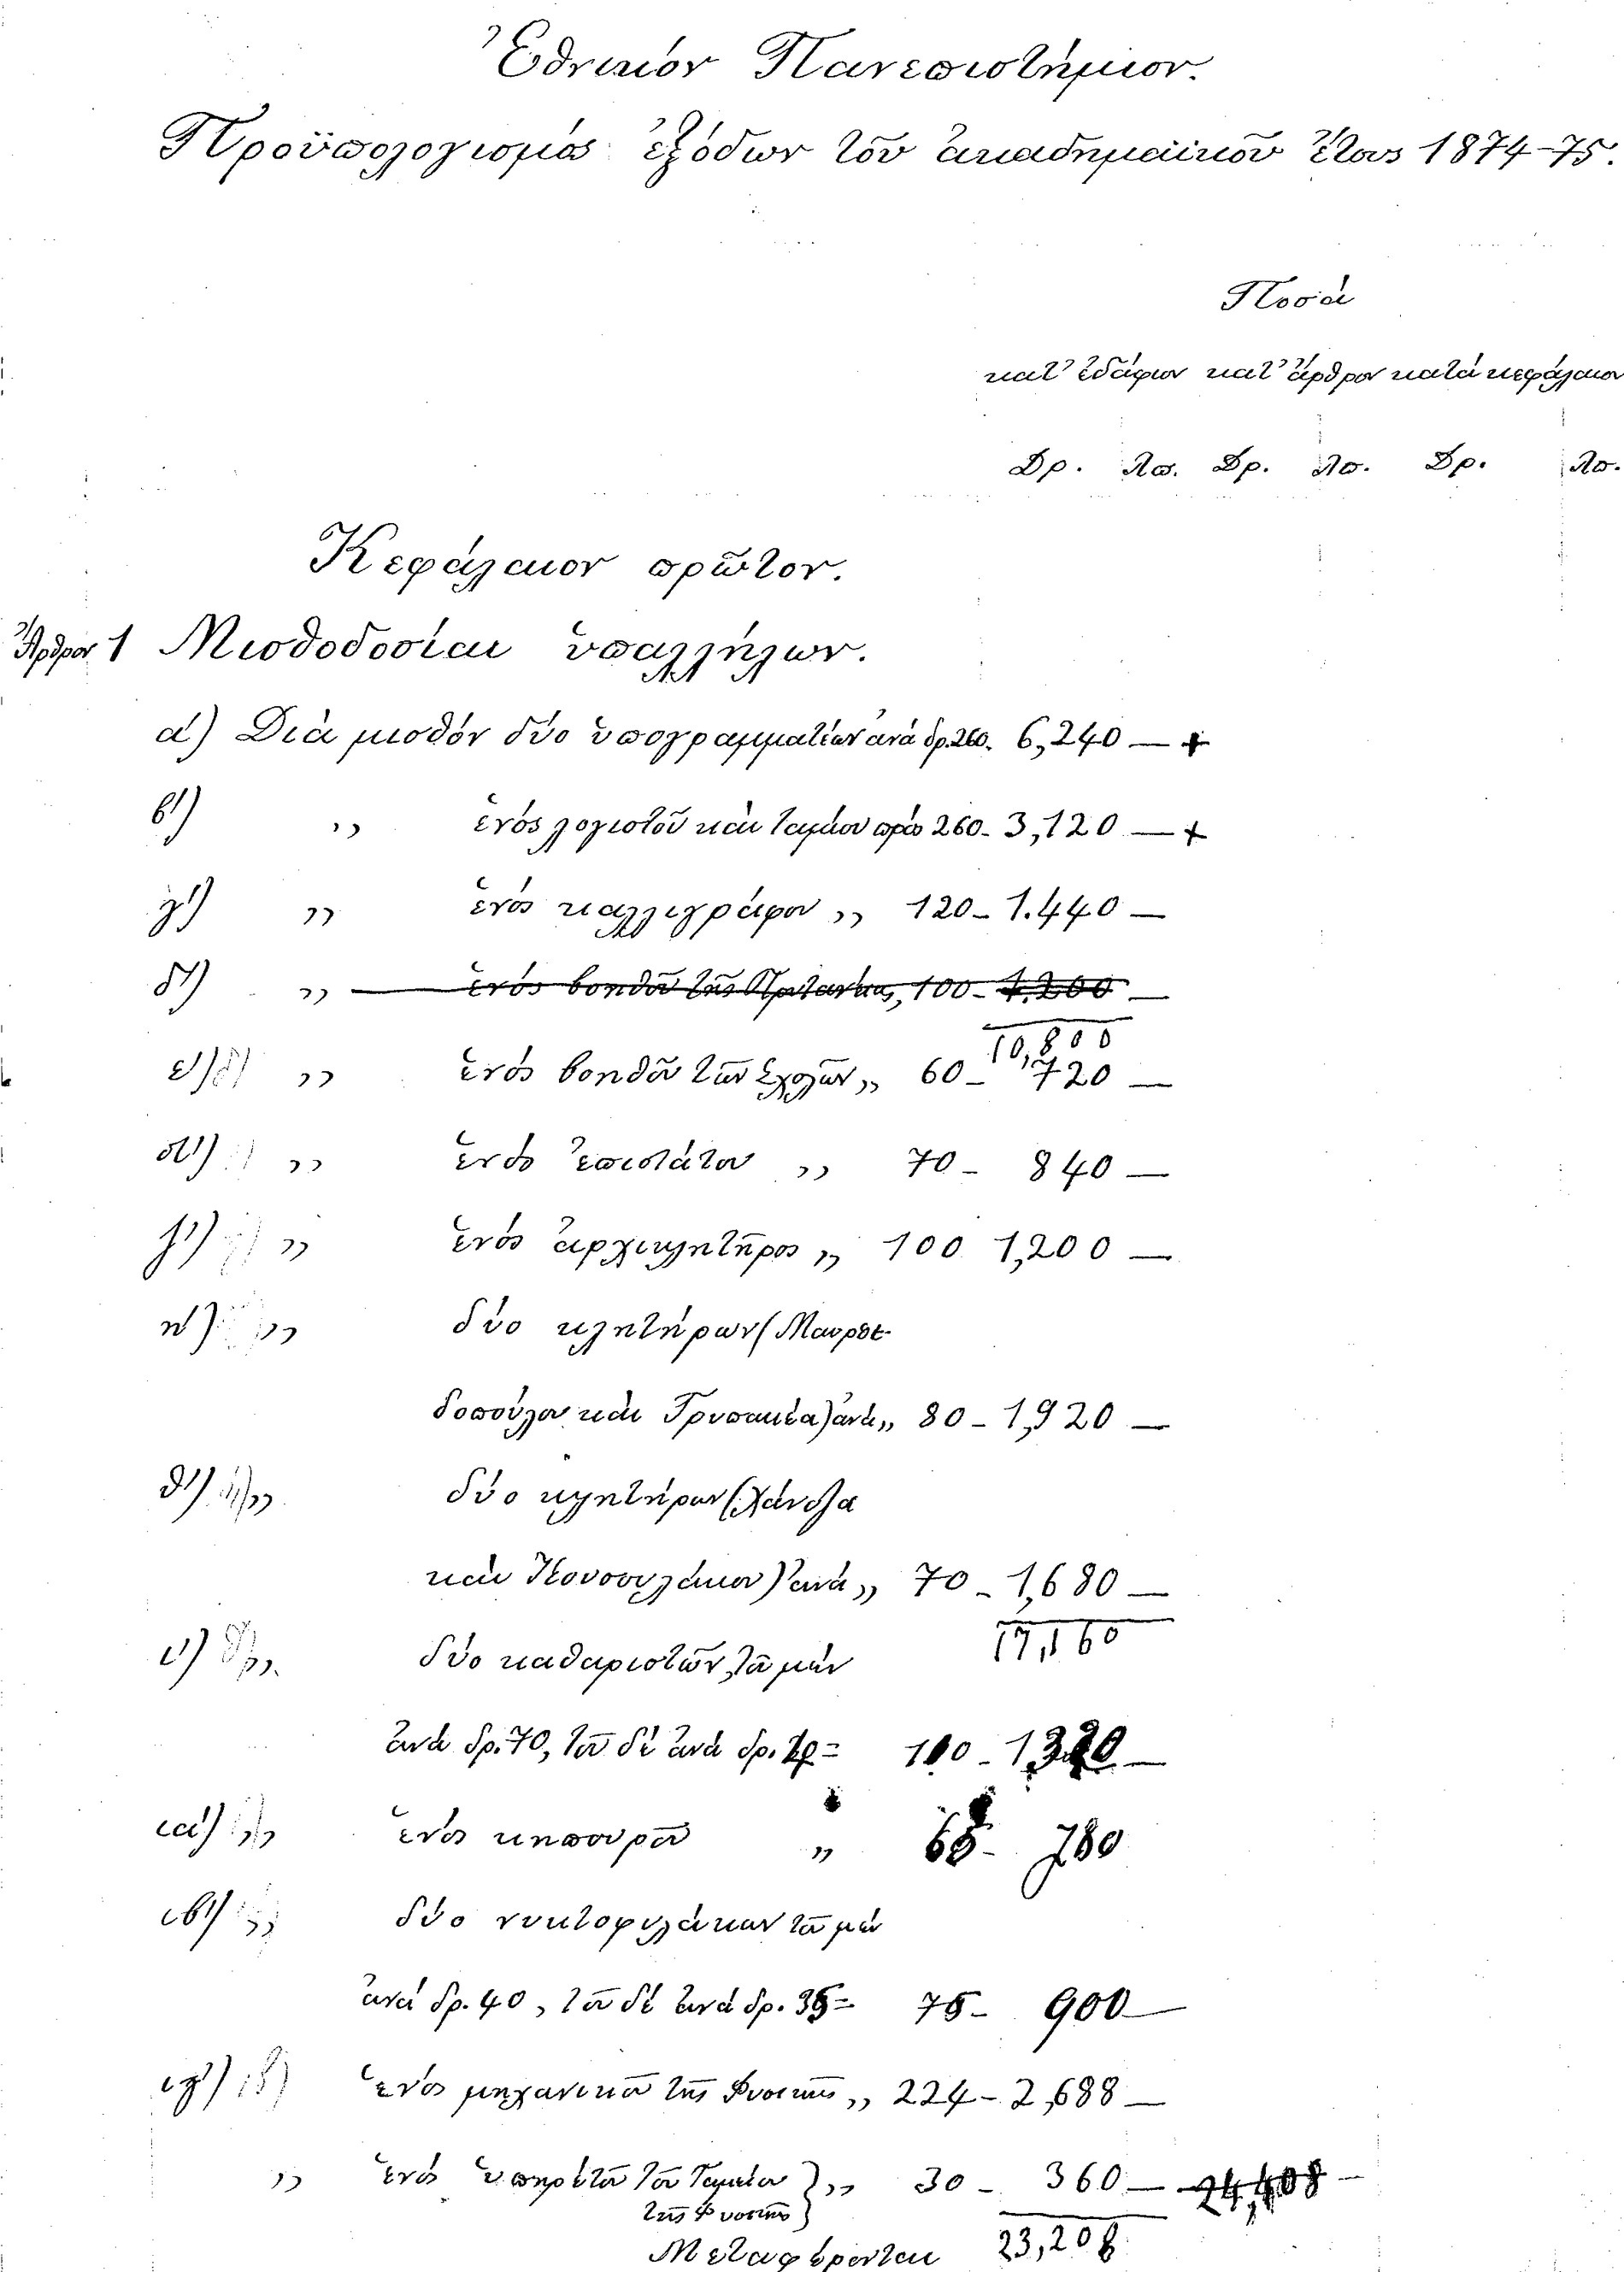 Ἐθνικὸν Πανεπιστήμιον.
Προϋπολογισμὸς ἐξόδων τοῦ ἀκαδημαϊκοῦ ἔτους 1874-75.
Ποσὰ
κατ' ἐδάφιον κατ' ἄρθρον κατὰ κεφάλαιον
Δρ. Λε. Δρ. Λε. Δρ. Λε.
Κεφάλαιον πρῶτον.
Ἄρθρον 1 Μισθοδοσίαι ὑπαλλήλων.
α') Διὰ μισθὸν δύο ὑπογραμματέων ἀνὰ δρ. 260. 6,240 —
β') ,, ἑνὸς λογιστοῦ καὶ ταμίου πρὸς 260 - 3,120 —
γ') ,, ἑνὸς καλλιγράφου ,, 120 - 1.440 —
δ') ,, ἑνὸς βοηθοῦ τῆς ,, 100 - 1,200 —
10,800
ε') ,, ἑνὸς βοηθοῦ τῶν Σχολῶν ,, 60 - 720 —
στ') ,, ἑνὸς ἐπιστάτου ,, 70 - 840 —
ζ') ,, ἑνὸς ἀρχικλητῆρος ,, 100 1,200 —
η') ,, δύο κλητήρων (Μαυρο
καὶ ) ἀνὰ ,, 80 - 1,920 —
θ') ,, δύο κλητήρων (
καὶ ) ἀνὰ ,, 70 - 1,680 —
17,160
ι') ,, δύο καθαριστῶν, τοῦ μὲν
ἀνὰ δρ. 70, τοῦ δὲ ἀνὰ δρ. = 110 - 1320 —
ια') ,, ἑνὸς κηπουροῦ ,, 65 - 780
ιβ') ,, δύο νυκτοφυλάκων τοῦ μὲν
ἀνὰ δρ. 40, τοῦ δὲ ἀνὰ δρ. 35 = 75 - 900 —
ιγ') ἑνὸς μηχανικοῦ τῆς Φυσικῆς ,, 224 - 2,688 —
,, ἑνὸς ὑπηρέτου τοῦ Ταμείου } ,, 30 - 360 —
τῆς Φυσικῆς }
Μεταφέρονται 23,208